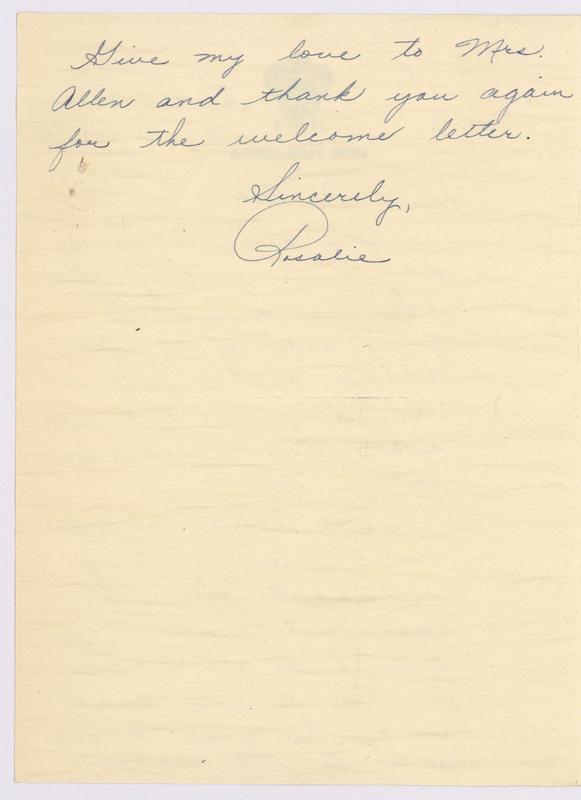 Give my love to Mrs.
Allen and thank you again
for the welcome letter.
Sincerely,
Rosalie